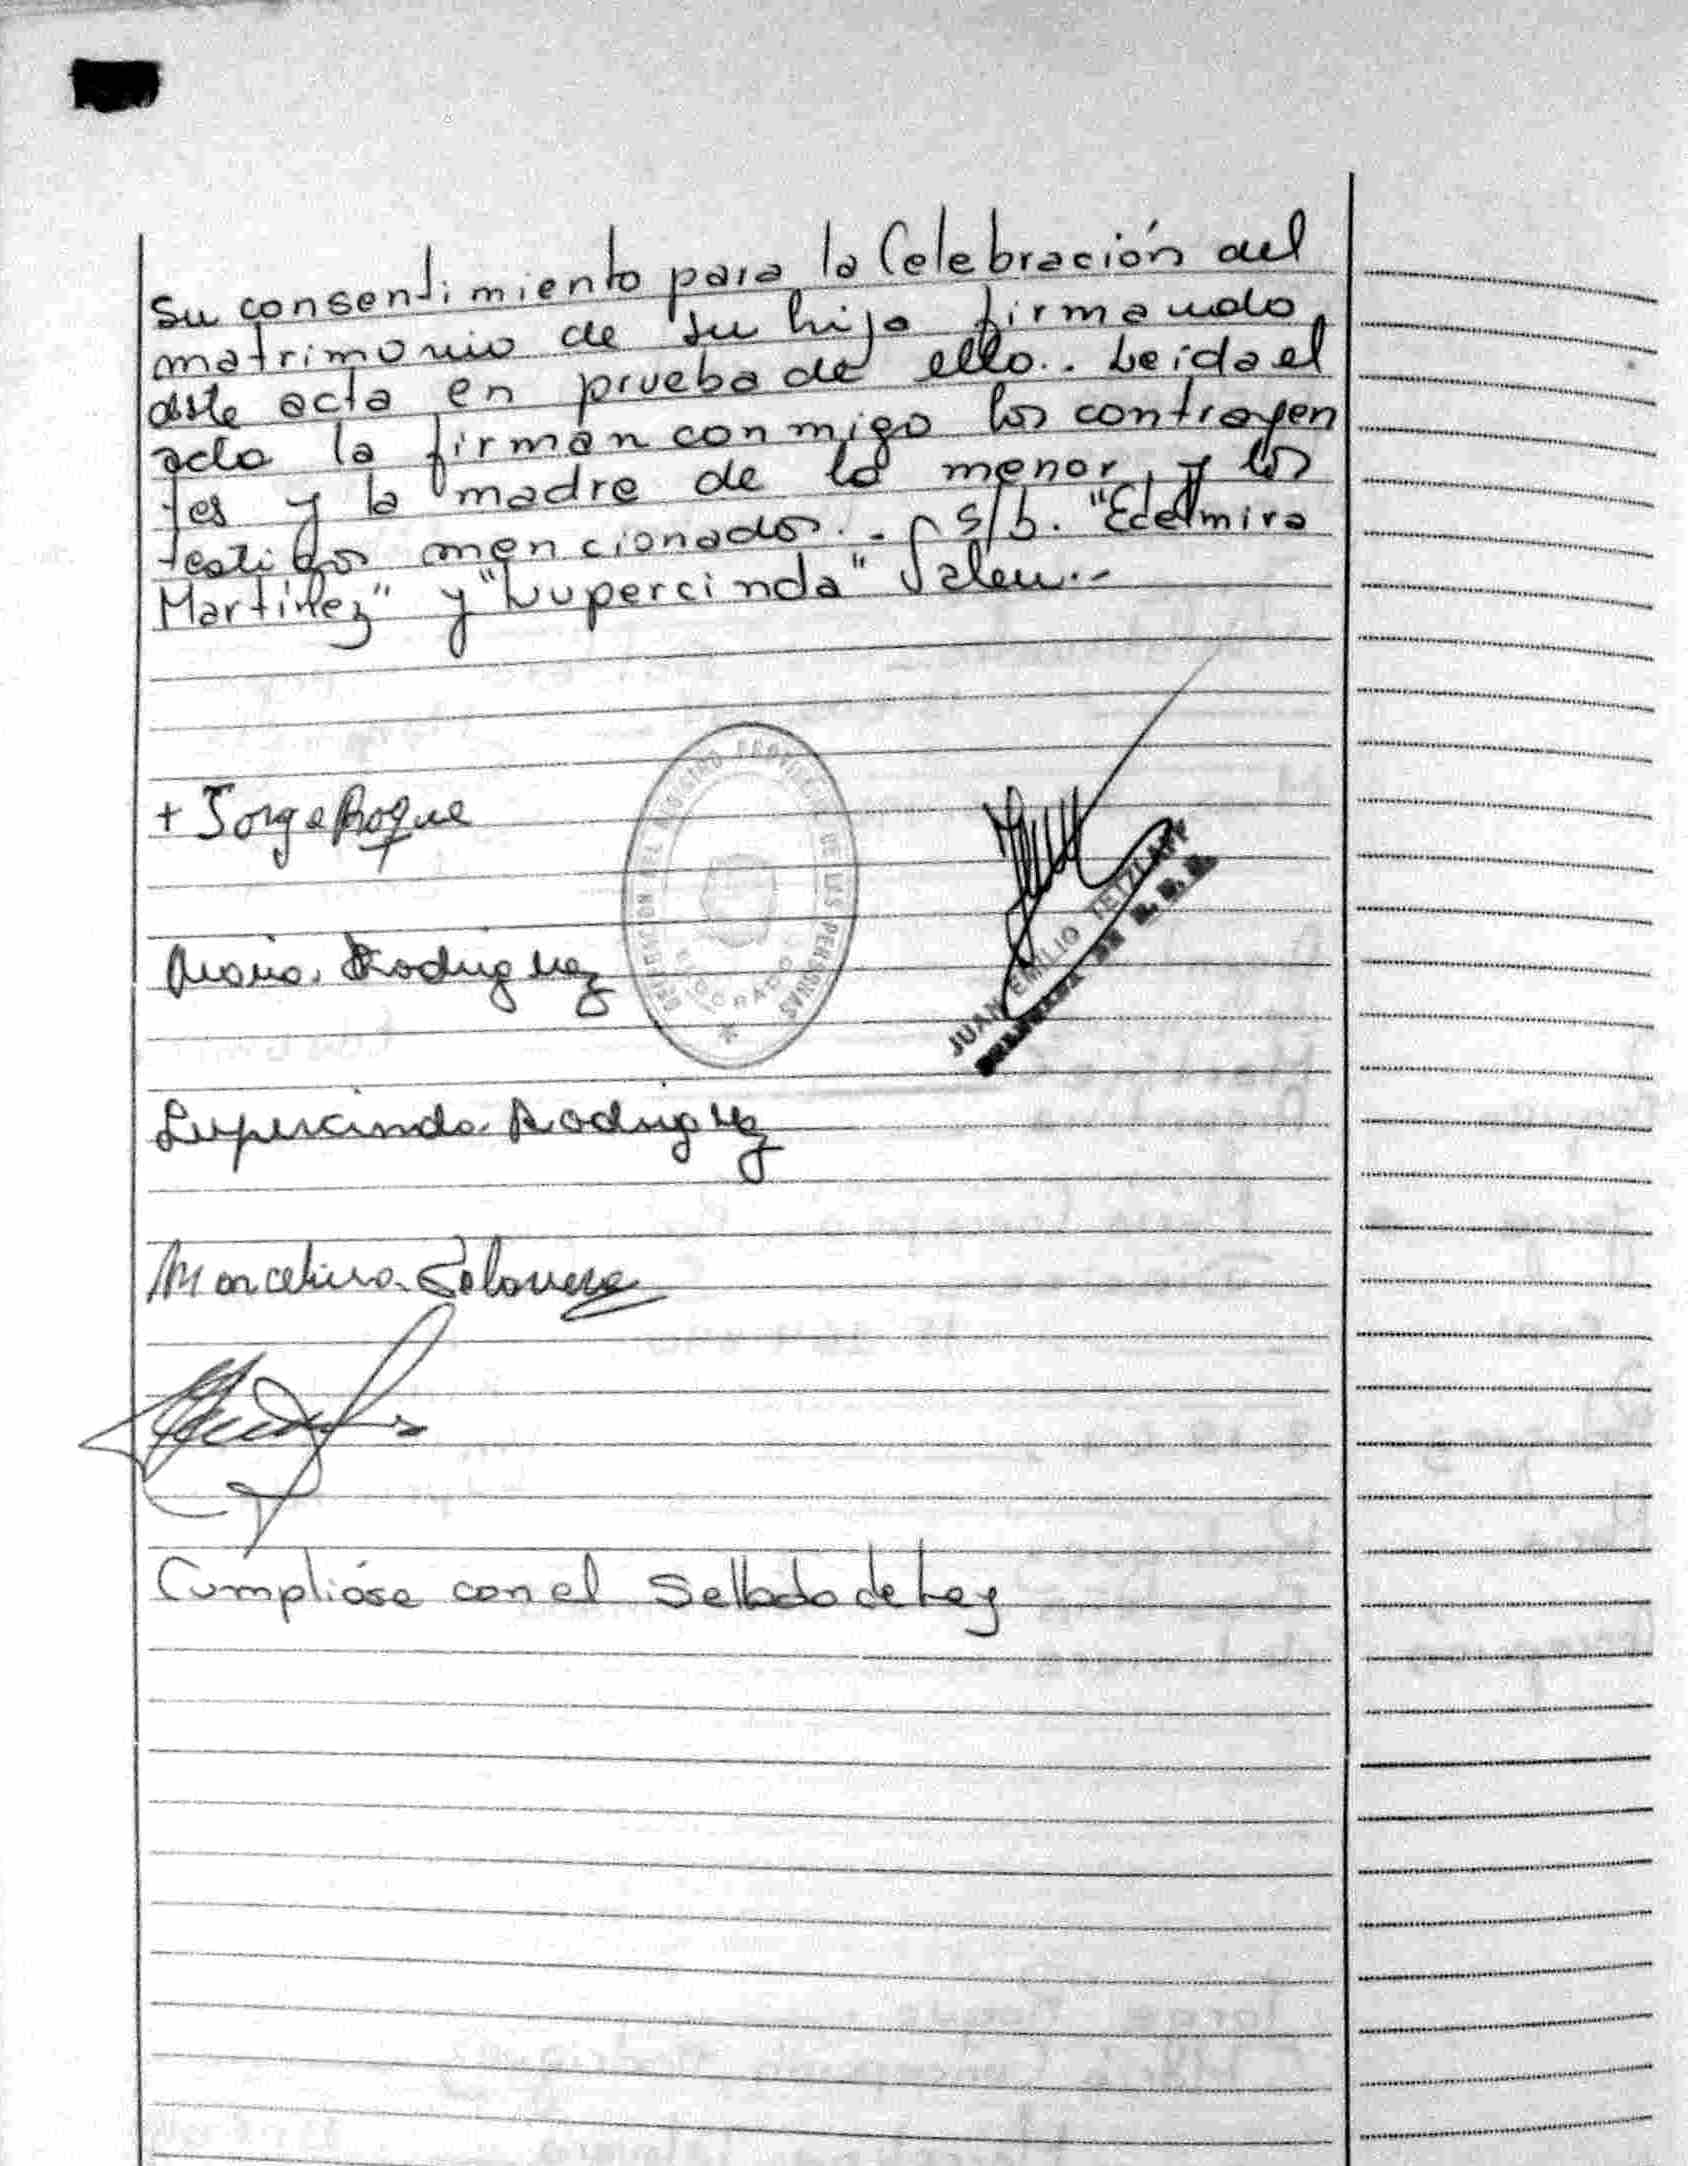 su consentimiento para la Celebración del
matrimonio de su hija firmando
este acta en prueba de ello.. Leida el
acta la firman conmigo los contrayen
tes y la madre de la menor y los
testigos mencionados.- s/b. "Edelmira
Martinez" y "Lupercinda" Valen.-
+ Jorge Roque
Maria Rodriguez
DELEGACION DEL REGISTRO PROVINCIAL DE LAS PERSONAS
ELDORADO
JUAN EMILIO TETZLAFF
Lupercinda Rodriguez
Marcelina Talavera
Cumplióse con el Sellado de Ley